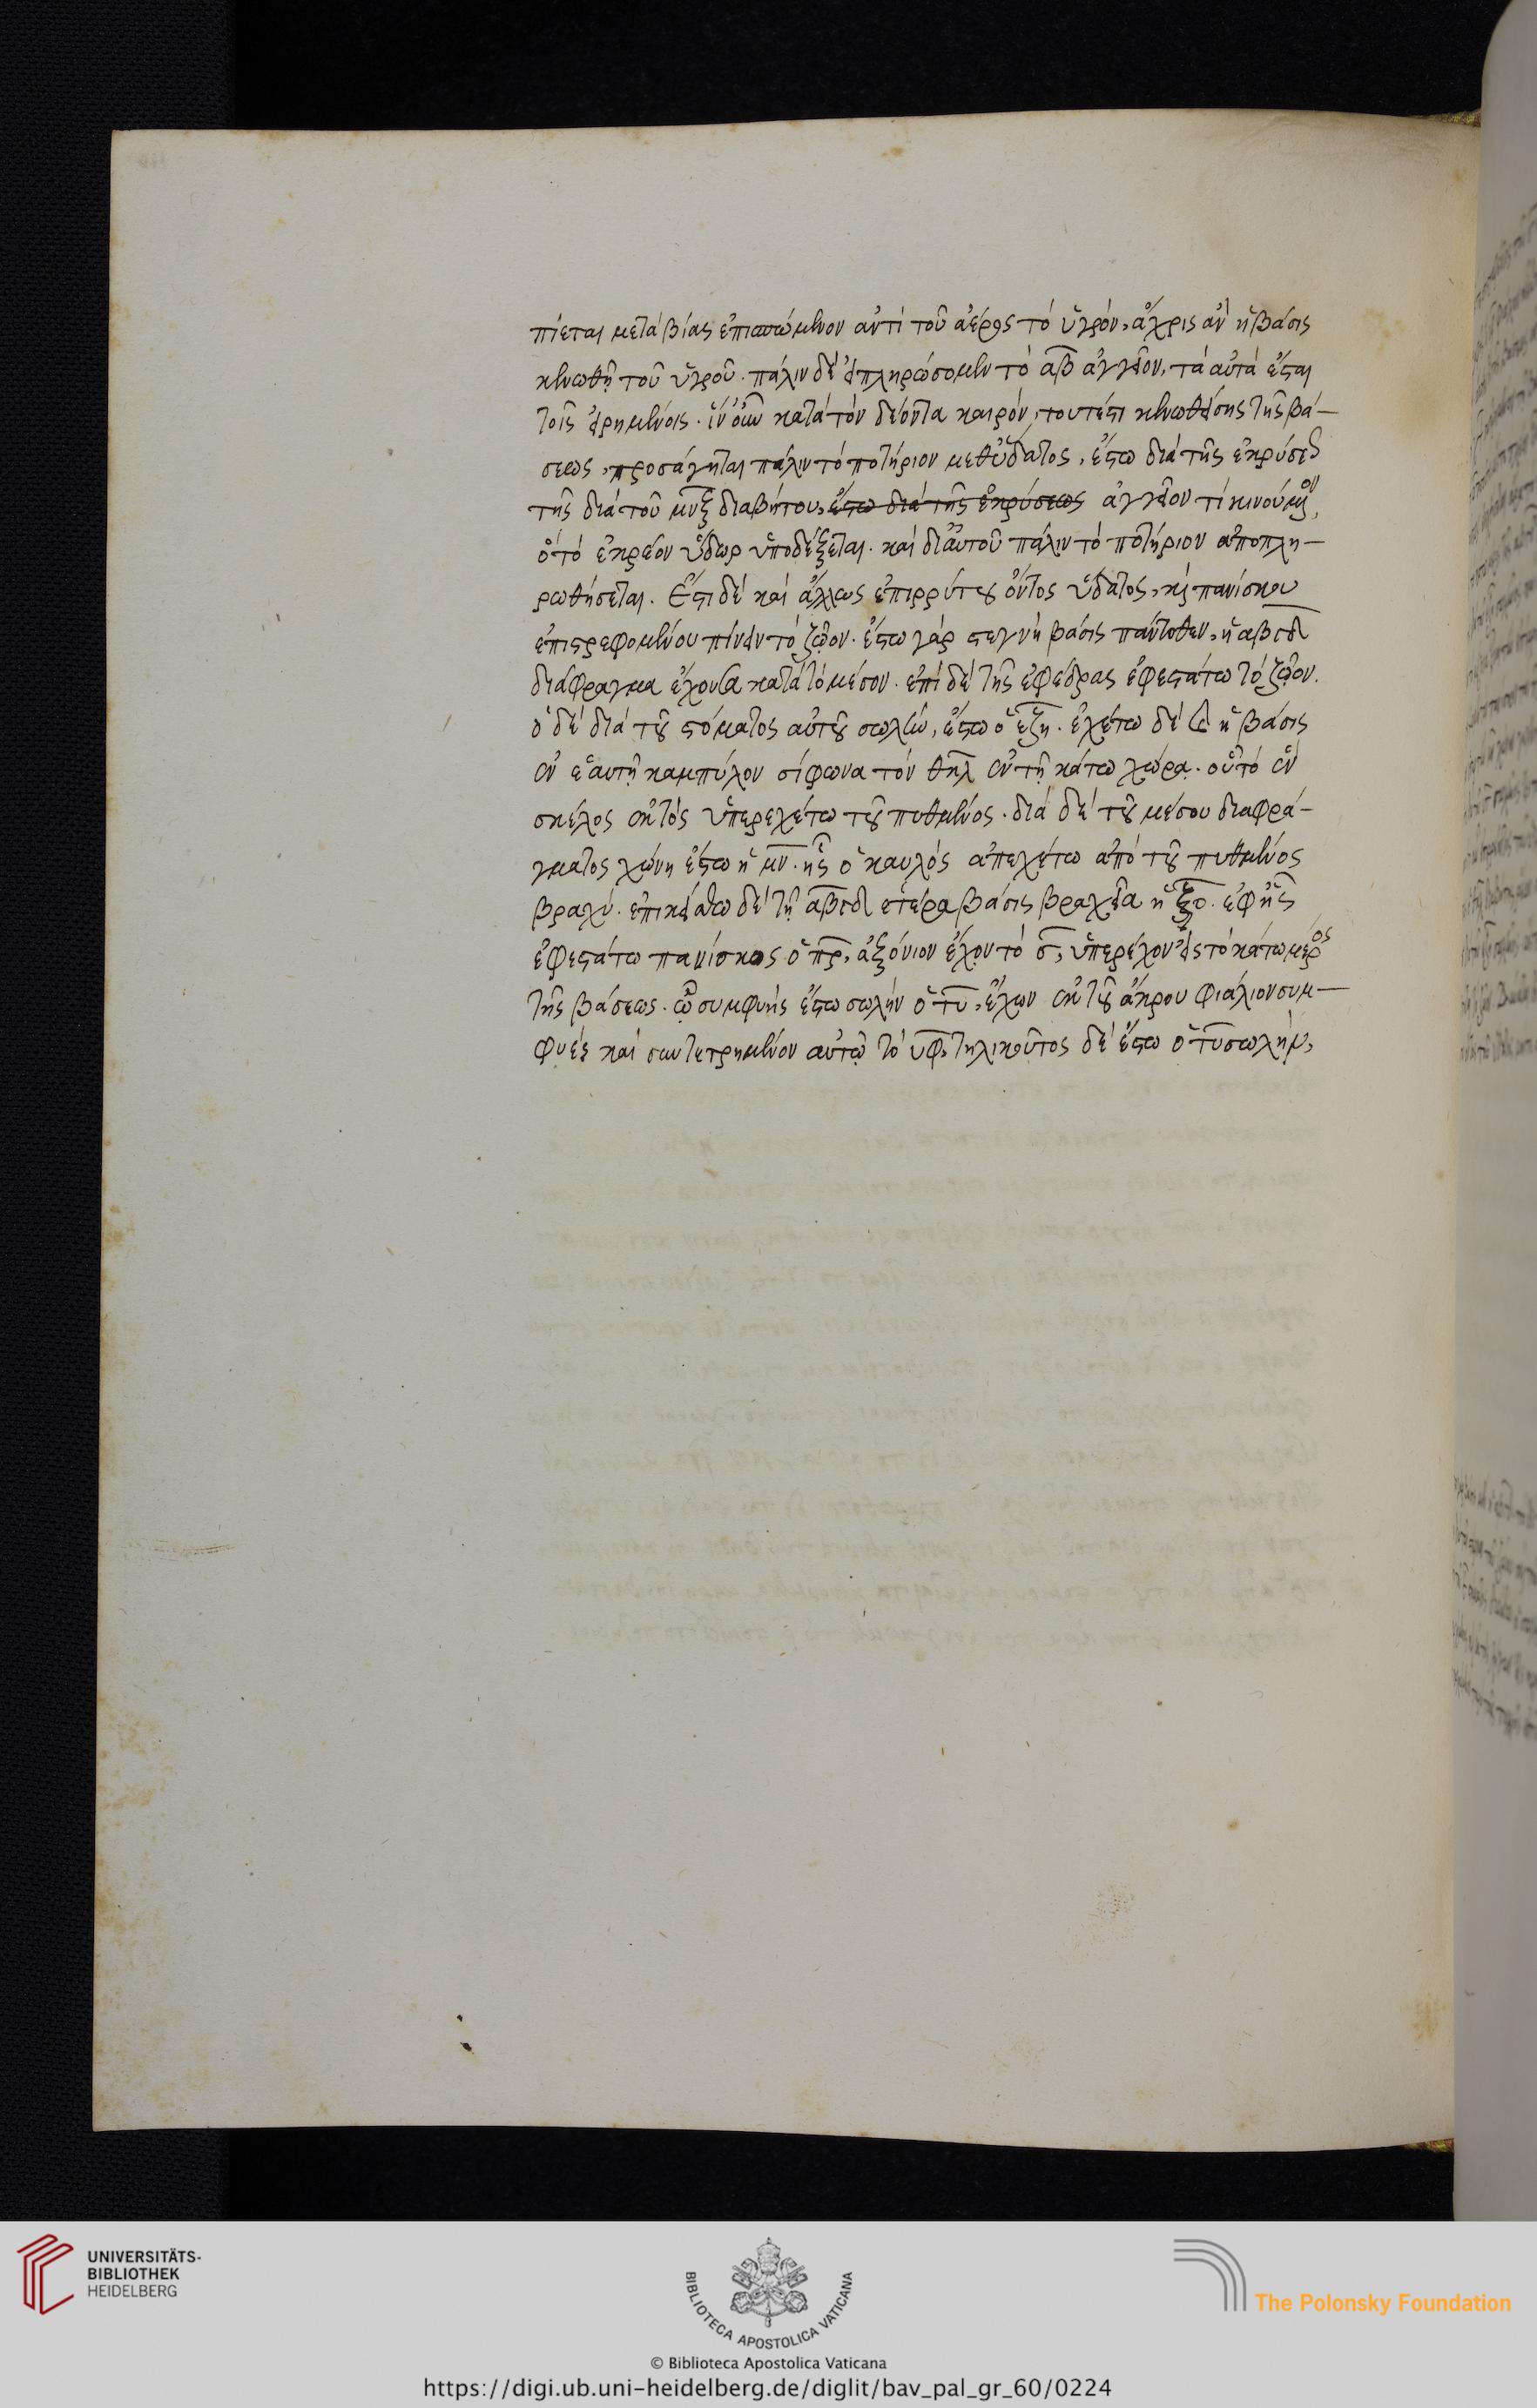 πίεται μετὰ βίας ἐπισπώμενον ἀντὶ τοῦ ἀέρος τὸ ὑγρὸν, ἄχρις ἂν ἡ βάσις
κενωθῇ τοῦ ὑγροῦ. πάλιν δὲ ἐὰν πληρώσομεν τὸ αβ ἀγγεῖον, τὰ αὐτὰ ἔσται
τοῖς εἰρημένοις. ἵν' οὖν κατὰ τὸν δέοντα καιρὸν, τουτέστι κενωθείσης τῆς βά-
σεως, προσάγηται πάλιν τὸ ποτήριον μεθ' ὕδατος, ἔστω διὰ τῆς ἐκρύσεως
τῆς διὰ τοῦ μνξ διαβήτου, ἔστω διὰ τῆς ἐκρύσεως ἀγγεῖον τι κινούμενον,
ὃ τὸ ἐκρέον ὕδωρ ὑποδέξεται. καὶ δι' αὐτοῦ πάλιν τὸ ποτήριον ἀποπλη-
ρωθήσεται. Ἔστι δὲ καὶ ἄλλως ἐπιρρύτου ὄντος ὕδατος, καὶ πανίσκου
ἐπιστρεφομένου πίνειν τὸ ζῷον. ἔστω γὰρ στεγνὴ βάσις πάντοθεν, ἡ αβγδ
διάφραγμα ἔχουσα κατὰ τὸ μέσον. ἐπὶ δὲ τῆς ἐφέδρας ἐφεστάτω τὸ ζῷον.
ὁ δὲ διὰ τοῦ στόματος αὐτοῦ σωλὴν, ἔστω ὁ εζη. ἐχέτω δὲ καὶ ἡ βάσις
ἐν ἑαυτῇ καμπύλον σίφωνα τὸν θκλ ἐν τῇ κάτω χώρᾳ. οὗ τὸ ἓν
σκέλος ἐκτὸς ὑπερεχέτω τοῦ πυθμένος. διὰ δὲ τοῦ μέσου διαφρά-
γματος χώνη ἔστω ἡ μν. ἧς ὁ καυλὸς ἀπεχέτω ἀπὸ τοῦ πυθμένος
βραχύ. ἐπικείσθω δὲ τῇ αβγδ ἑτέρα βάσις βραχεῖα ἡ ξο. ἐφ' ἧς
ἐφεστάτω πανίσκος ὁ πρ, ἀξόνιον ἔχον τὸ σ, ὑπερέχον εἰς τὸ κάτω μέρος
τῆς βάσεως. ᾧ συμφυὴς ἔστω σωλὴν ὁ τυ, ἔχων ἐκ τοῦ ἄκρου φιάλιον συμ-
φυὲς καὶ συντετρημένον αὐτῷ τὸ υφ. τηλικοῦτος δὲ ἔστω ὁ τυ σωλὴν,
UNIVERSITÄTS-
BIBLIOTHEK
HEIDELBERG
BIBLIOTECA APOSTOLICA VATICANA
The Polonsky Foundation
© Biblioteca Apostolica Vaticana
https://digi.ub.uni-heidelberg.de/diglit/bav_pal_gr_60/0224